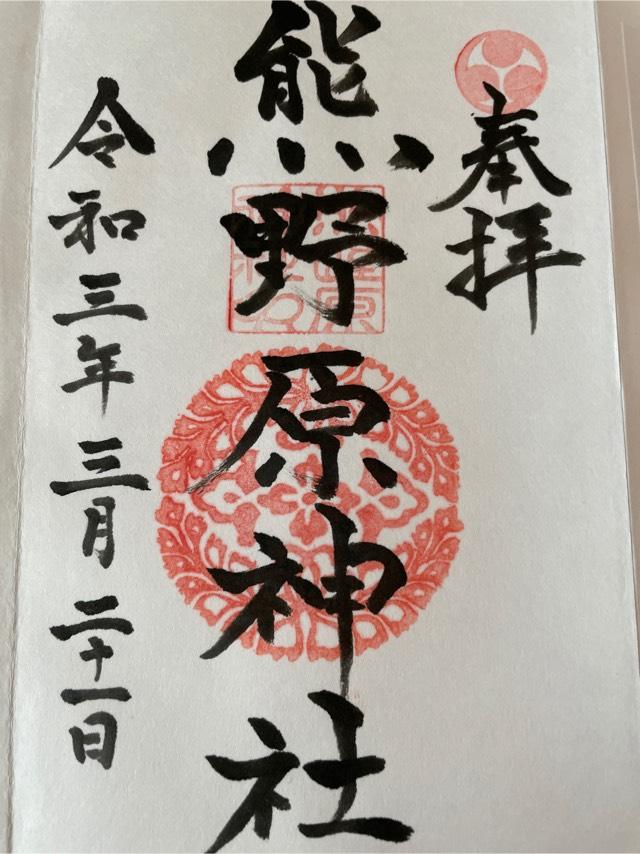 奉拝
熊野原神社
令和三年三月二十一日